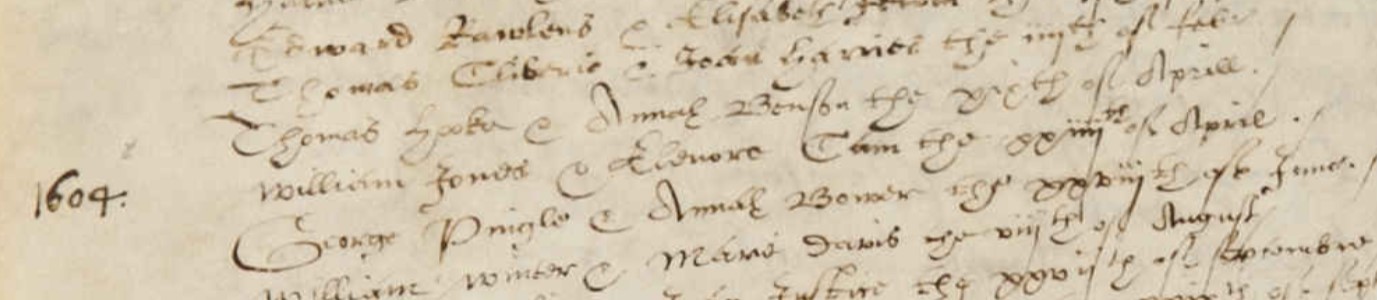 Edward Rawlens & Elisabeth
Thomas Cliverie & Joan Harries the iiijth of febr
Thomas Hooke & Annah Benson the xixth of Aprill.
William Jones & Elenore Cam the xxiiijth of April.
1604. George Pingle & Annah Bower the xxviijth of June.
William Winter & Marie Davis the viijth of August
Justice the xxvijth of